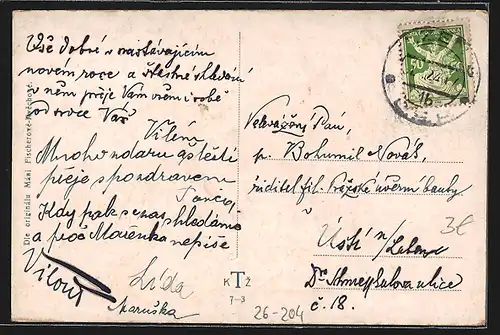 Vše dobré v nastávajícím
novém roce a šťastné shledání
v něm přeje Vám všem i sobě
od srdce Váš
Vilém
Mnoho zdaru a štěstí
přeje s pozdravem
Kdy pak se zas shledáme
a proč Mařenka nepíše
Vilouš
Lída
Maruška
Dle originálu Máši Fischerové-
K T Ž
7-3
26-204
50
Velevážený Pán,
p. Bohumil Novák,
řiditel fil. Pražské úvěrní banky
Ústí n/Labem
ulice
č. 18.
3€